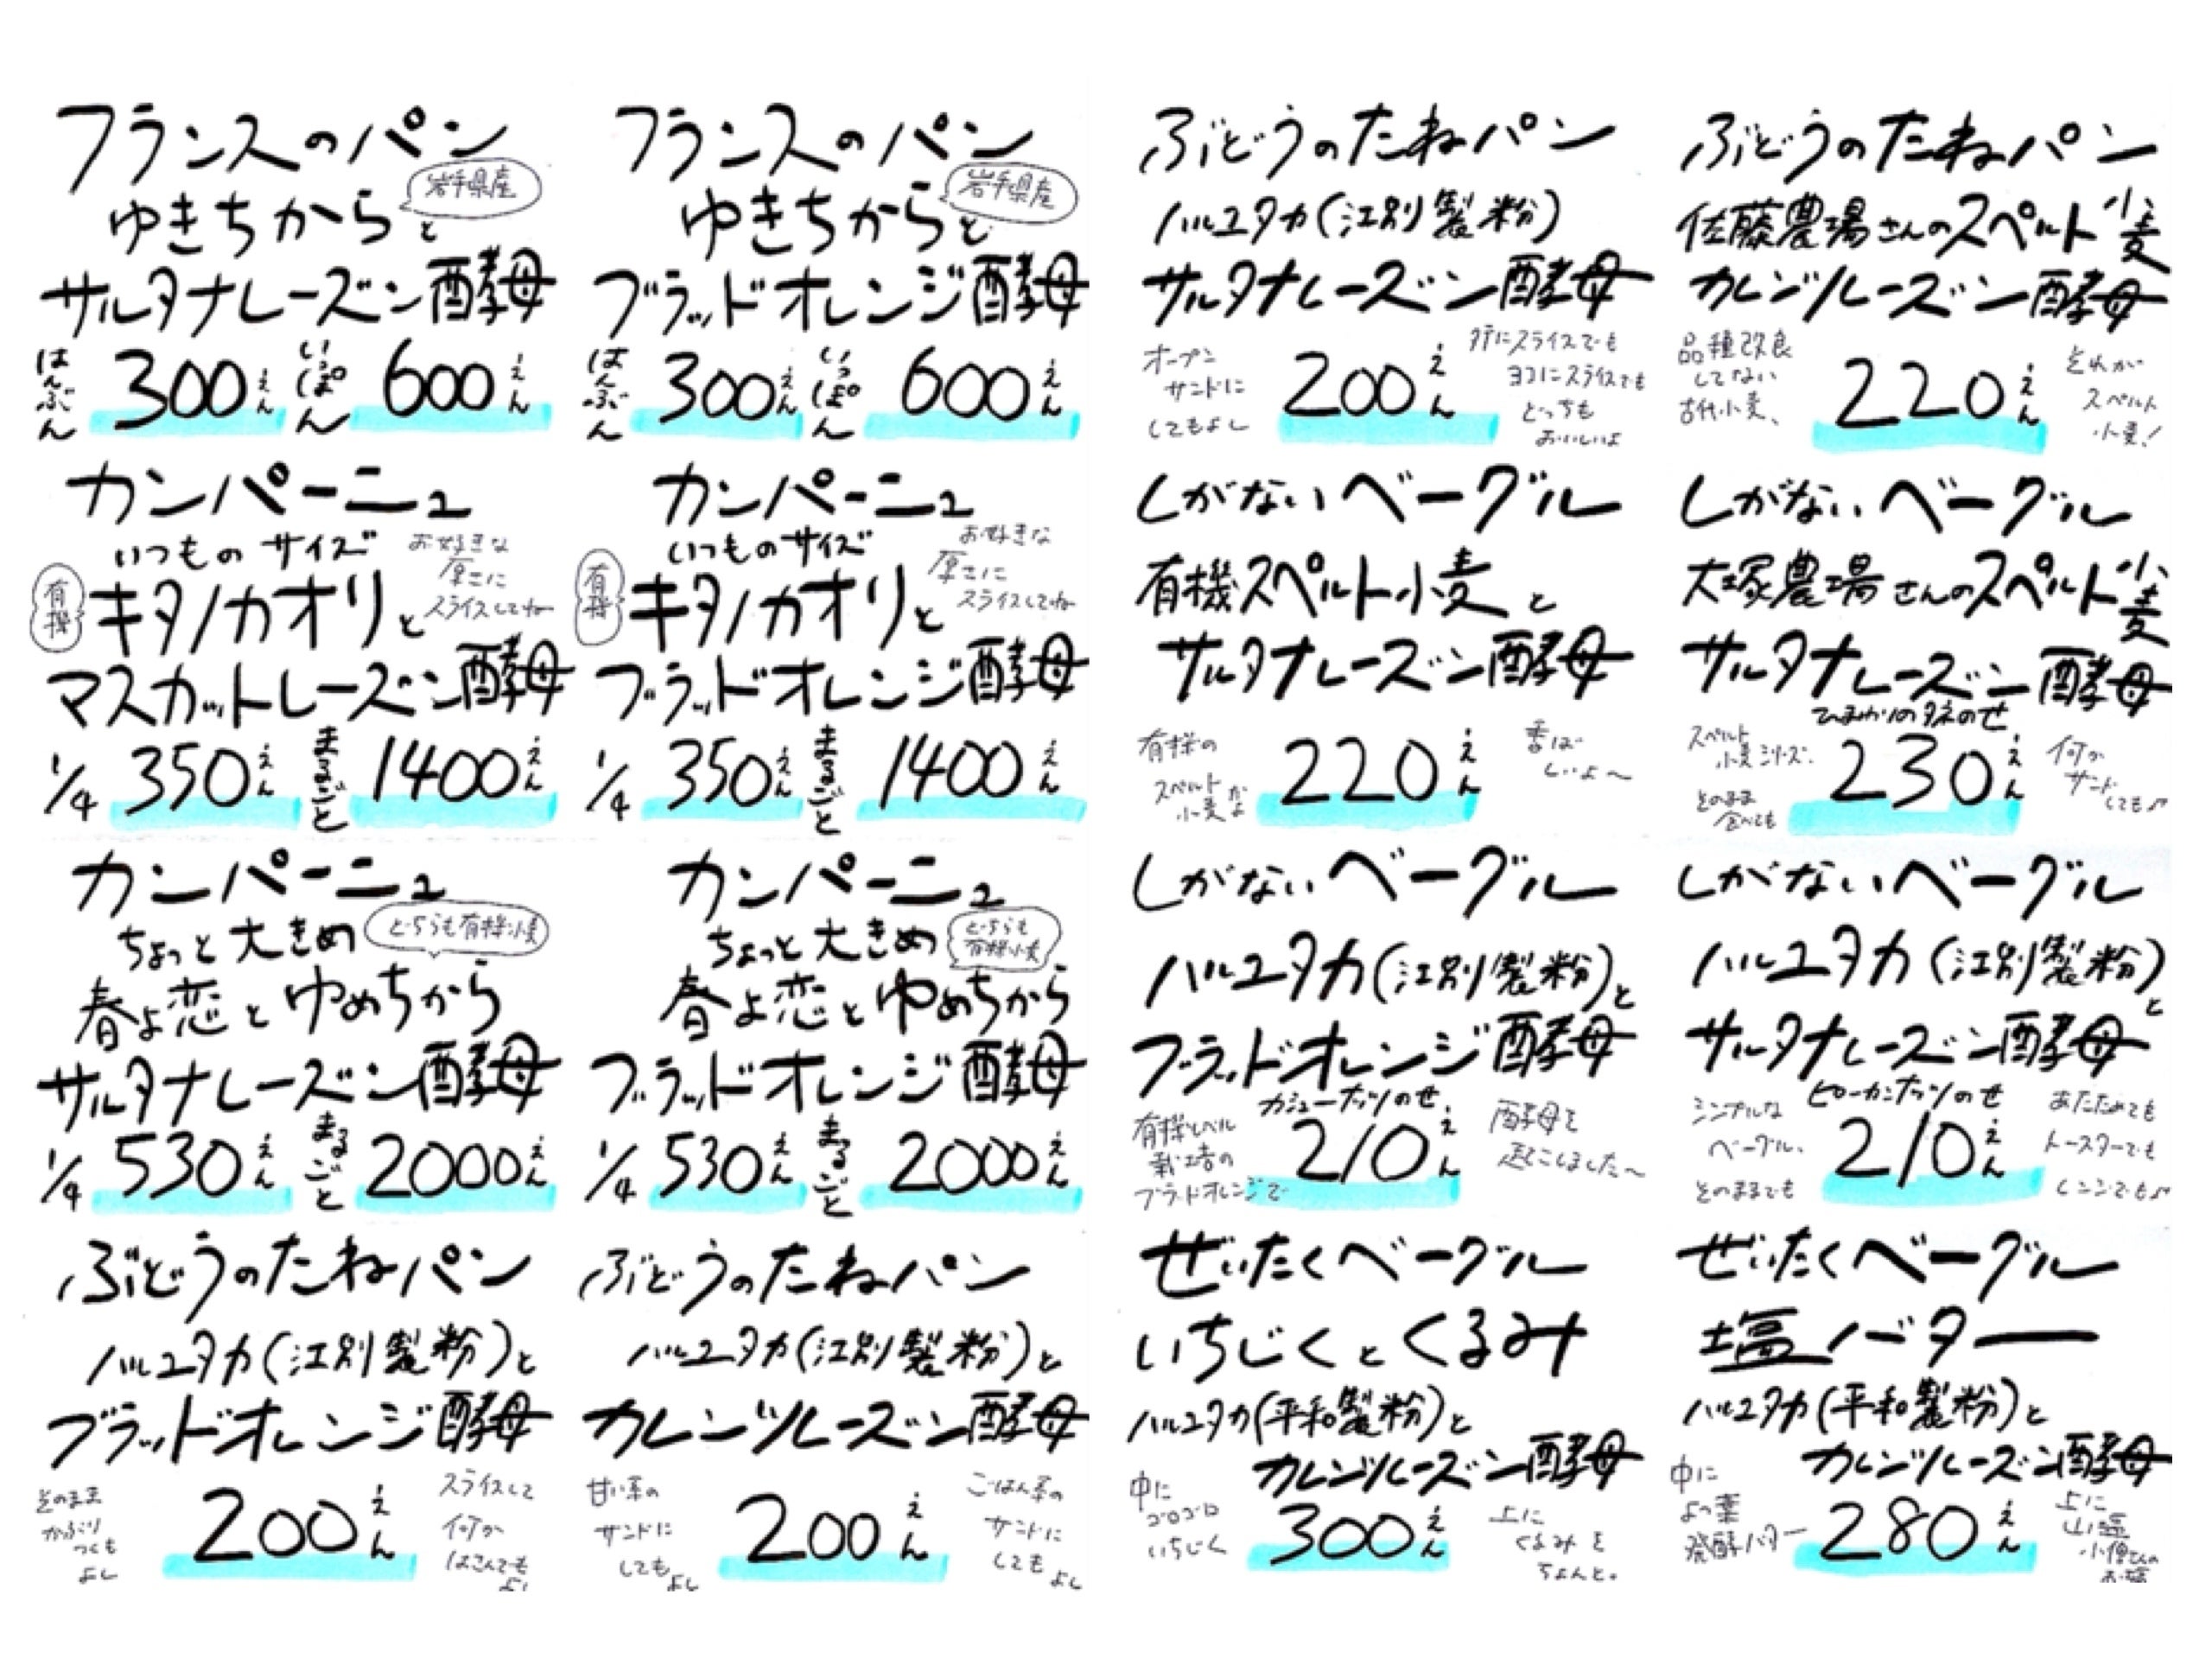 フランスのパン
岩手県産
ゆきちからと
サルタナレーズン酵母
はんぶん 300えん いっぽん 600えん
フランスのパン
岩手県産
ゆきちからと
ブラッドオレンジ酵母
はんぶん 300えん いっぽん 600えん
ぶどうのたねパン
ハルユタカ(江別製粉)
サルタナレーズン酵母
オープン
サンドに
してもよし
200えん
スライスでも
ヨコにスライスでも
どっちも
おいしいよ
ぶどうのたねパン
佐藤農場さんのスペルト小麦
カレンツレーズン酵母
品種改良
してない
古代小麦、
220えん
それが
スペルト
小麦!
カンパーニュ
いつものサイズ
お好きな
厚さに
スライスしてね
有機
キタノカオリと
マスカットレーズン酵母
1/4 350えん まるごと 1400えん
カンパーニュ
いつものサイズ
お好きな
厚さに
スライスしてね
有機
キタノカオリと
ブラッドオレンジ酵母
1/4 350えん まるごと 1400えん
しがないベーグル
有機スペルト小麦と
サルタナレーズン酵母
有機の
スペルト
小麦だよ
220えん
香ば
しいよ〜
しがないベーグル
大塚農場さんのスペルト小麦
サルタナレーズン酵母
ひまわりのタネのせ
スペルト
小麦シリーズ、
そのまま
食べても
230えん
何か
サンド
しても♪
カンパーニュ
ちょっと大きめ
どちらも有機小麦
春よ恋とゆめちから
サルタナレーズン酵母
1/4 530えん まるごと 2000えん
カンパーニュ
ちょっと大きめ
どちらも
有機小麦
春よ恋とゆめちから
ブラッドオレンジ酵母
1/4 530えん まるごと 2000えん
しがないベーグル
ハルユタカ(江別製粉)と
ブラッドオレンジ酵母
カシューナッツのせ
有機レベル
栽培の
ブラッドオレンジで
210えん
酵母を
起こしました〜
しがないベーグル
ハルユタカ(江別製粉)と
サルタナレーズン酵母
ピーカンナッツのせ
シンプルな
ベーグル、
そのままでも
210えん
あたためても
トースターでも
レンジでも♪
ぶどうのたねパン
ハルユタカ(江別製粉)と
ブラッドオレンジ酵母
そのまま
かぶり
つくも
よし
200えん
スライスして
何か
はさんでも
よし
ぶどうのたねパン
ハルユタカ(江別製粉)と
カレンツレーズン酵母
甘い系の
サンドに
しても
よし
200えん
ごはん系の
サンドに
しても
よし
ぜいたくベーグル
いちじくとくるみ
ハルユタカ(平和製粉)と
カレンツレーズン酵母
中に
ゴロゴロ
いちじく
300えん
上に
くるみを
ちょんと。
ぜいたくベーグル
塩バター
ハルユタカ(平和製粉)と
カレンツレーズン酵母
中に
よつ葉
発酵バター
280えん
上に
山塩
小僧さんの
お塩